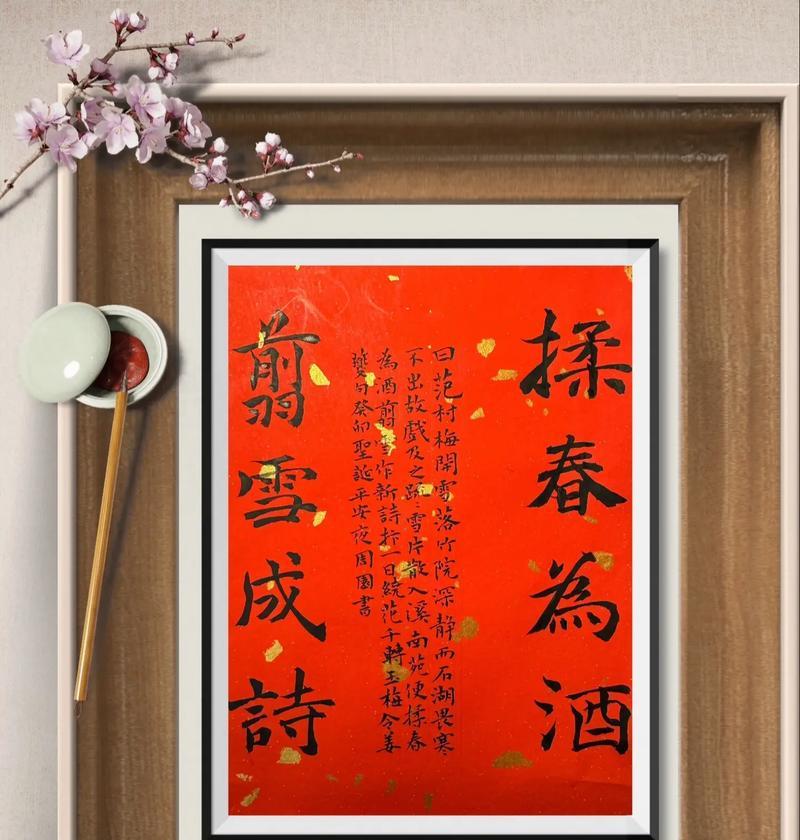 揉春為酒
曰范村梅開雪落竹院深静而石湖畏寒
不出故戲及之踈〻雪片散入溪南苑便揉春
為酒翦雪作新詩拚一日繞花千轉玉梅令姜
夔句癸卯聖誕平安夜周園書
翦雪成詩